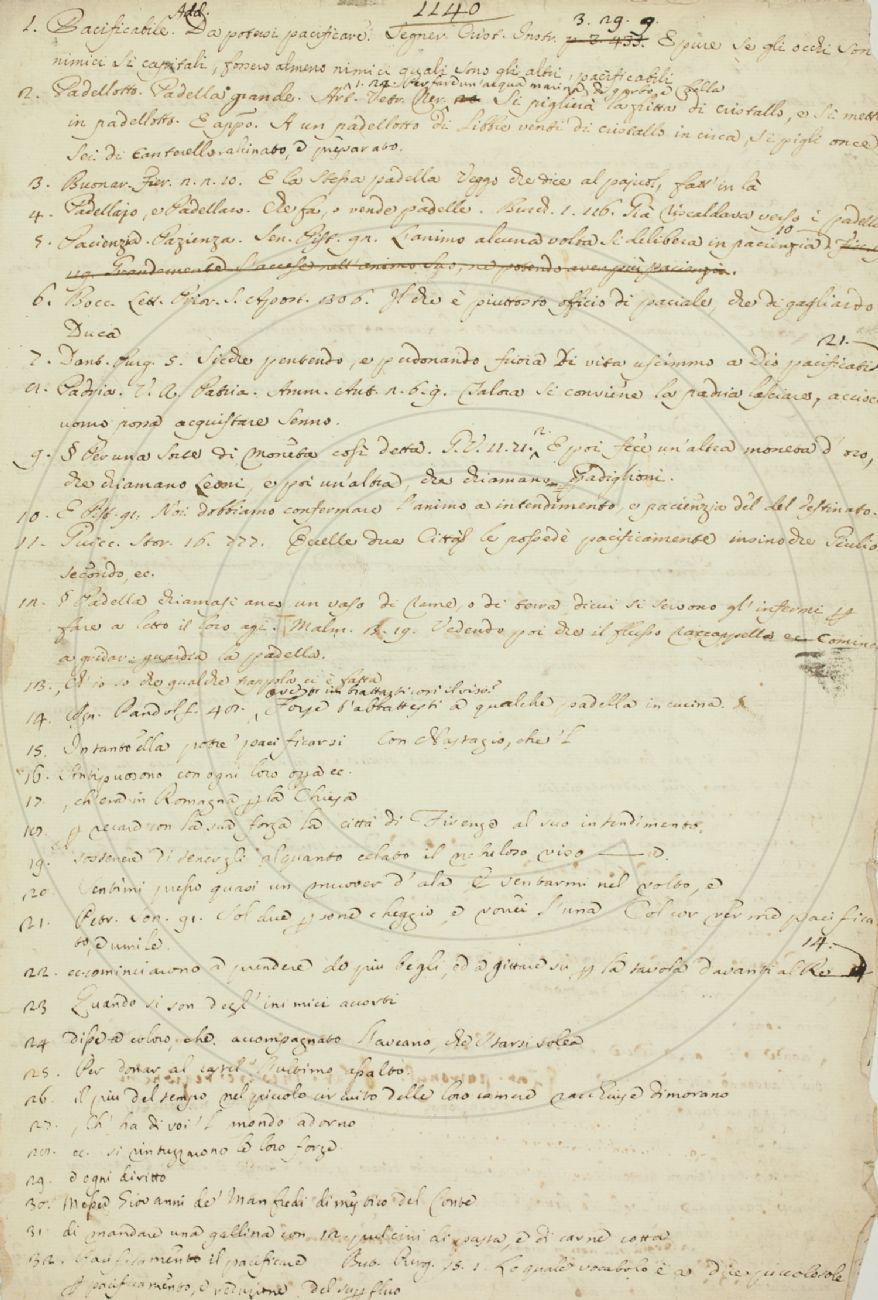 1140
1. Pacificabile. Add. Da potersi pacificare. Segner. Crist. Instr. p. 2. 433. 3. 29. 9. E pure se gli occhi son
nimici sì capitali, fossero almeno nimici quali sono gli altri, pacificabili
2. Padellotto. Padella grande. Art. Vetr. Ner. 1. 24. Per fare un'acqua marina, di garbo, e bella Si piglierà la fritta di cristallo, e si mett
in padellotto. E appo. A un padellotto di libbre venti di cristallo in circa, si pigli once
sei di orpello calcinato, e preparato.
3. Buonar. Fier. E la stessa padella veggo che dice al pajuol, fatt' in là
4. Padellajo, e Padellaro. Che fa, o vende padelle. Burch. 1. 116. Già riscaldava verso i padella
5. Pacienzia. Pazienza. Sen. Pist. 92. L'animo alcuna volta si delibera in pacienzia
119. Grandemente s'accese nell'animo suo, ne potendo aver più pacienzia.
6. Bocc. Lett. Prior. S. Apost. 306. Il che è piuttosto officio di paciale, che di gagliardo
Duca
7. Dant. Purg. 5. Sicchè pentendo, e perdonando fuora Di vita uscimmo a Dio pacificati 21.
8. Padria. V. A. Patria. Amm. Ant. Talora si conviene la padria lasciare, acciocc
uomo possa acquistare senno.
9. § Per una sorte di moneta così detta. G. V. 11. 71. 2. E poi fece un'altra moneta d'oro,
che chiamano Leoni, e poi un'altra, che chiamano Padiglioni.
10. E Pist. 91. Noi dobbiamo confermare l'animo a intendimento, e pacienzia del destinato.
11. Guicc. Stor. 16. 777. Quelle due Città le possedè pacificamente insino che Giulio
secondo, ec.
12. § Padella chiamasi anco un vaso di rame, o di terra, di cui si servono gl'infermi p
fare a letto il loro agi. Malm. 19. Vedendo poi che il flusso raccappella Cominc
a gridar: guardia la padella.
13. Ch'io so che qualche trappola ci è fatta
14. Agn. Pandolf. 48. avesse imbrattasti così il viso? Forse t'abbattesti a qualche padella in cucina.
15. In tanto ella potrè pacificarsi Con Nastagio, che 'l
16. con ogni loro opra ec.
17. , ch'era in Romagna p la Chiesa
18. p recar con la sua forza la città di Firenze al suo intendimento,
19. sostenere di tenergli alquanto celato il nobiloso viso — e.
20. Sentimi presso quasi un muover d'ala E ventarmi nel volto, e
21. Petr. Son. 91. Sol due psone cheggio, e vorrei l'una Col cor ver me pacifica
to, e umile.
22. ec. cominciarono a prendere de più begli, ed a gittare su p la tavola davanti al Re 14.
23 Quando si son degl'inimici accorti
24 disse a coloro, che. accompagnato l'aveano, che starsi solea
25. Per donar al castel l'ultimo assalto.
26. il più del tempo nel piccolo circuito delle loro camere racchiuse dimorano
27. , Ch'ha di voi 'l mondo adorno
28. ec. si rintuzzarono le loro forze
29. e ogni diritto
30. Messe Giovanni de' Manfredi dimestico del Conte
31. di mandare una gallina con 12 pulcini di pasta, e di carne cotta
32. Pacificamento il pacificare But. Purg. 15. 1. Lo quale vocabolo è a
pacificamento, e reduzione del supfluo